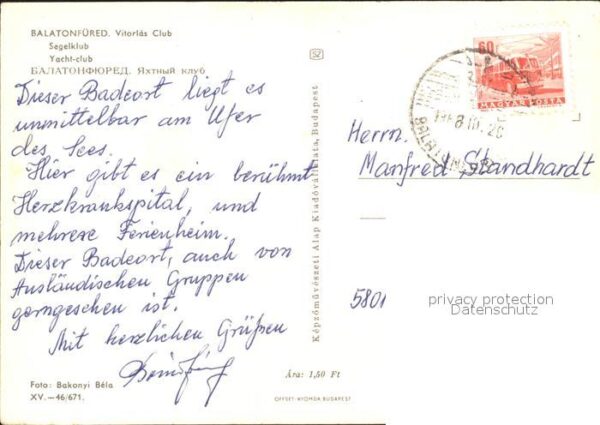 BALATONFÜRED. Vitorlás Club
Segelklub
Yacht-club
БАЛАТОНФЮРЕД. Яхтный клуб
Dieser Badeort liegt es
unmittelbar am Ufer
des Sees.
Hier gibt es ein berühmt
Herzkrankspital, und
mehrese Ferienheim.
Dieser Badeort, auch von
Ausländischen Gruppen
gerngesehen ist.
Mit herzlichen Grüßen
Foto: Bakonyi Béla
XV.—46/671.
SZ
Képzőművészeti Alap Kiadóvállalata, Budapest
Ára: 1,50 Ft
OFFSET-NYOMDA BUDAPEST
60f
MAGYAR POSTA
Herrn.
Manfred Standhardt
5801
privacy protection
Datenschutz